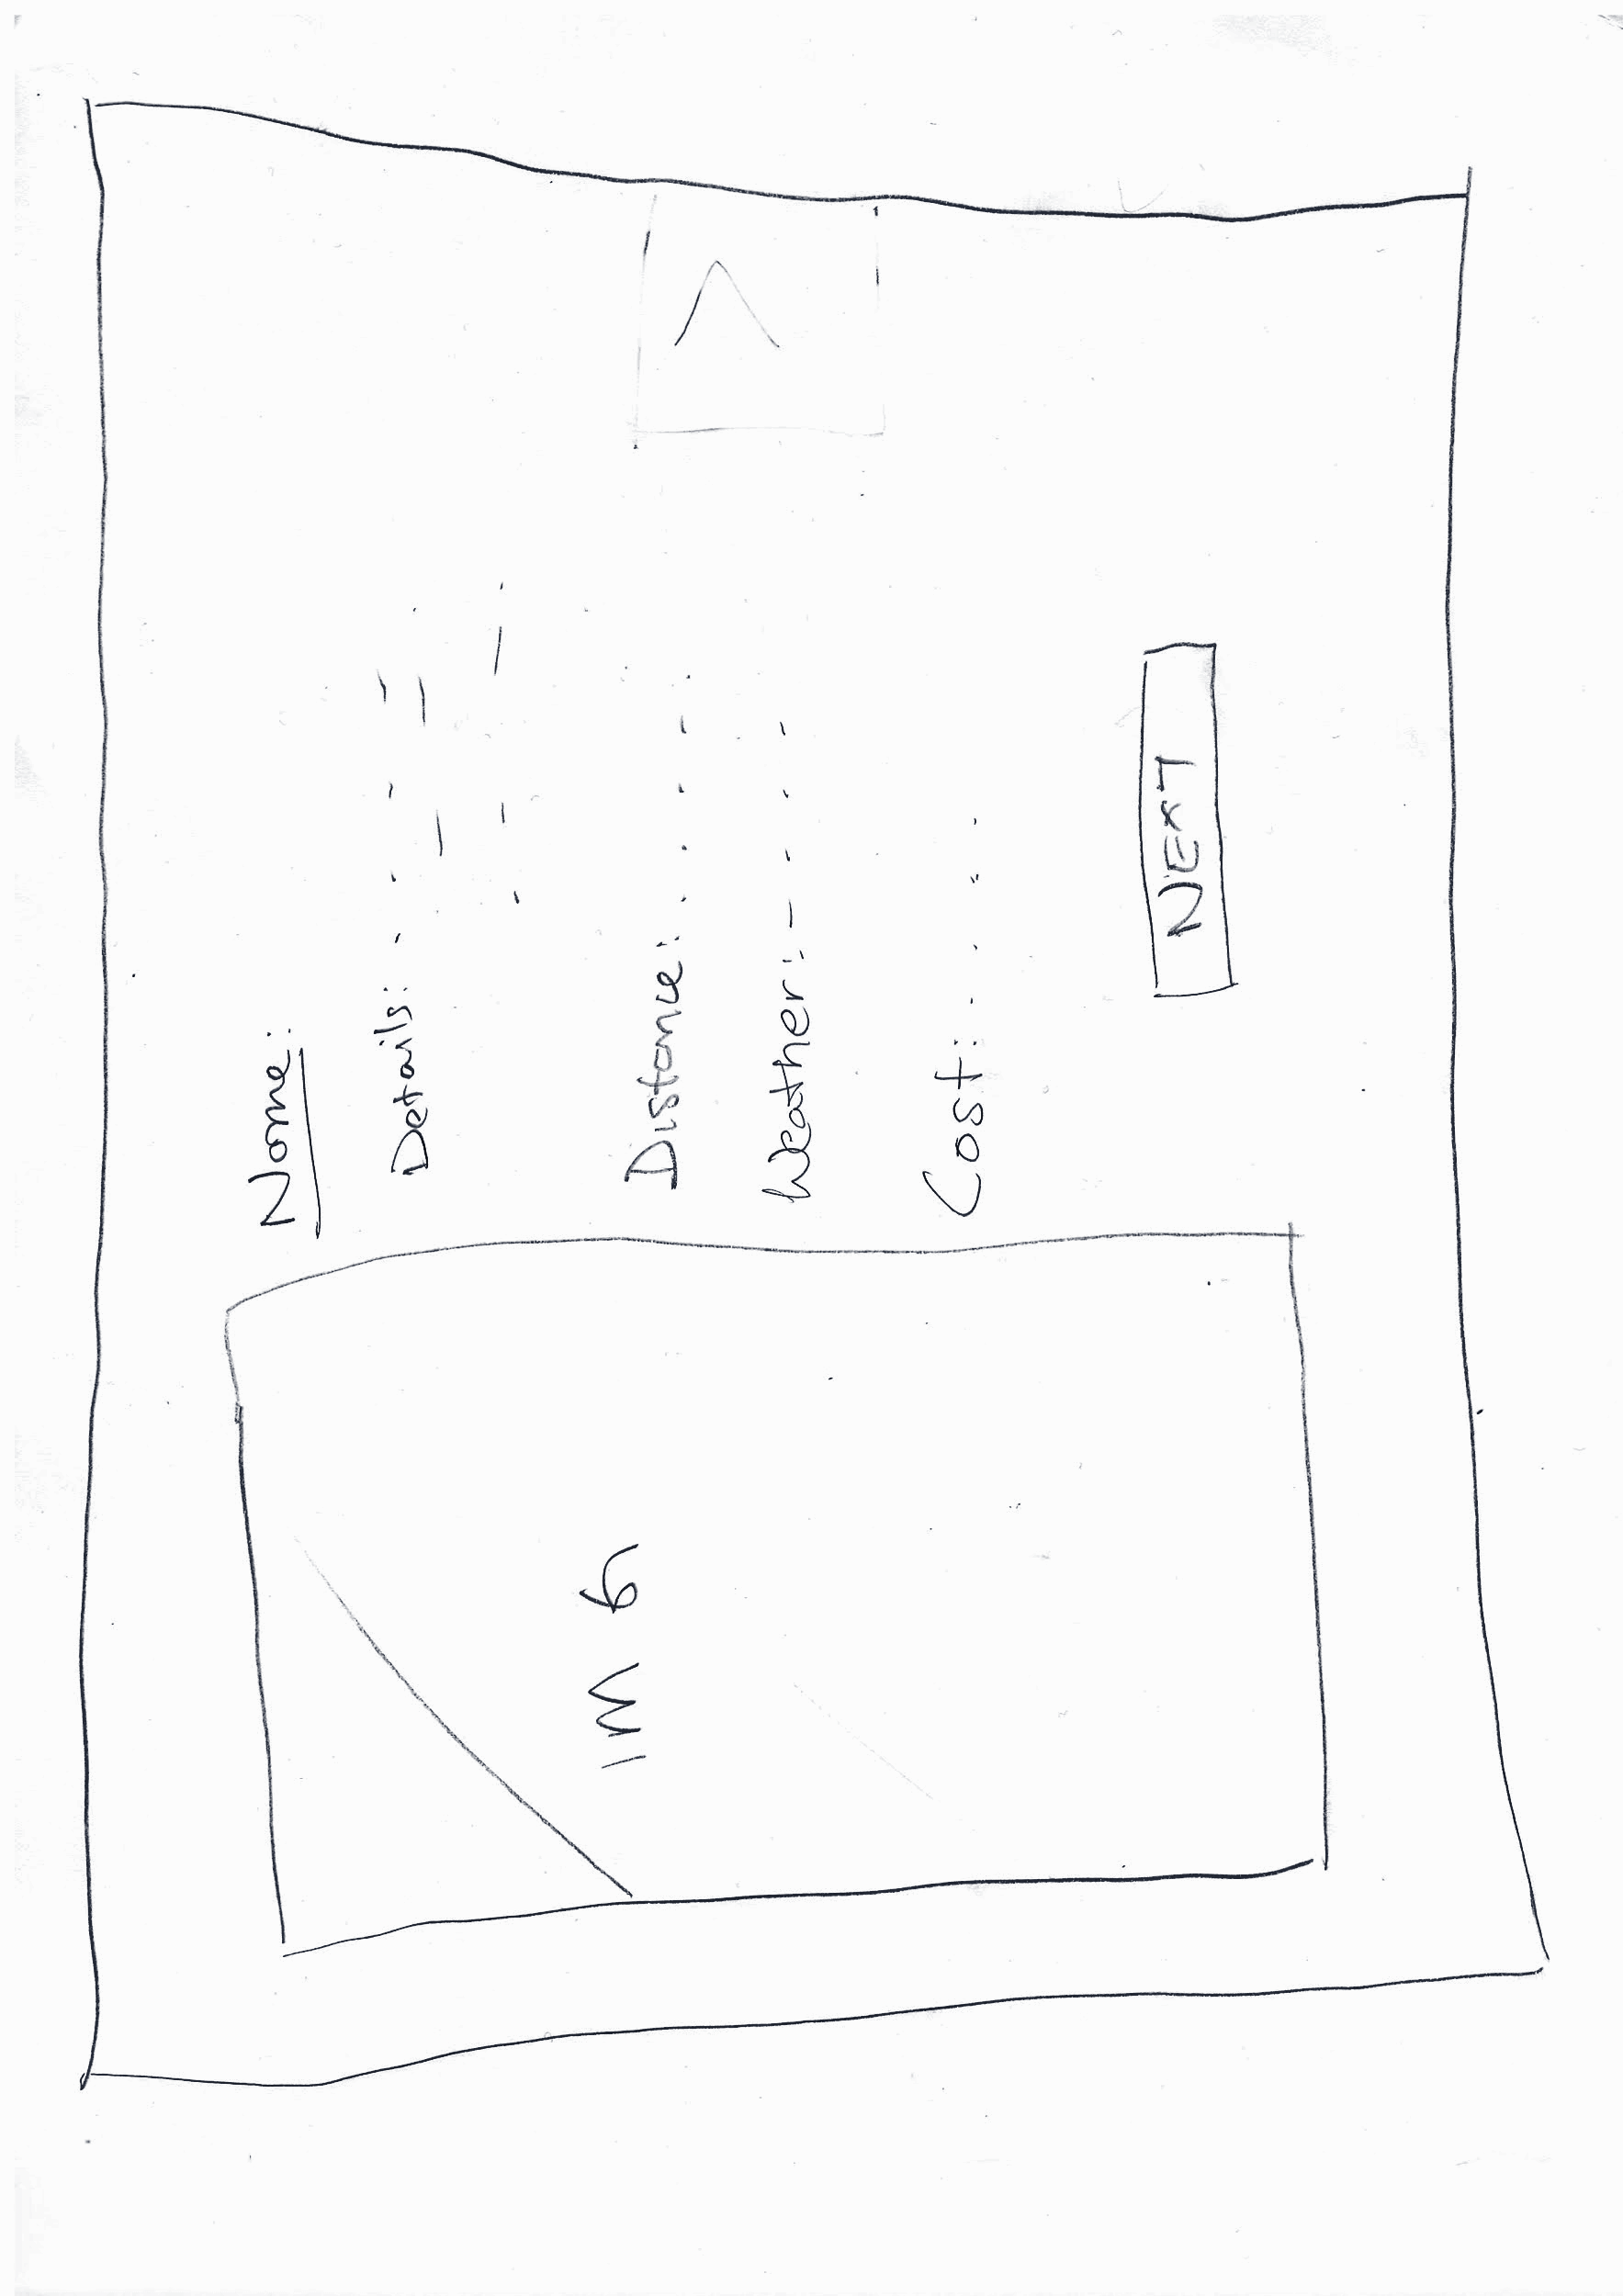 Name:
Details:
Distance:
Weather:
Cost:
NEXT
IMG